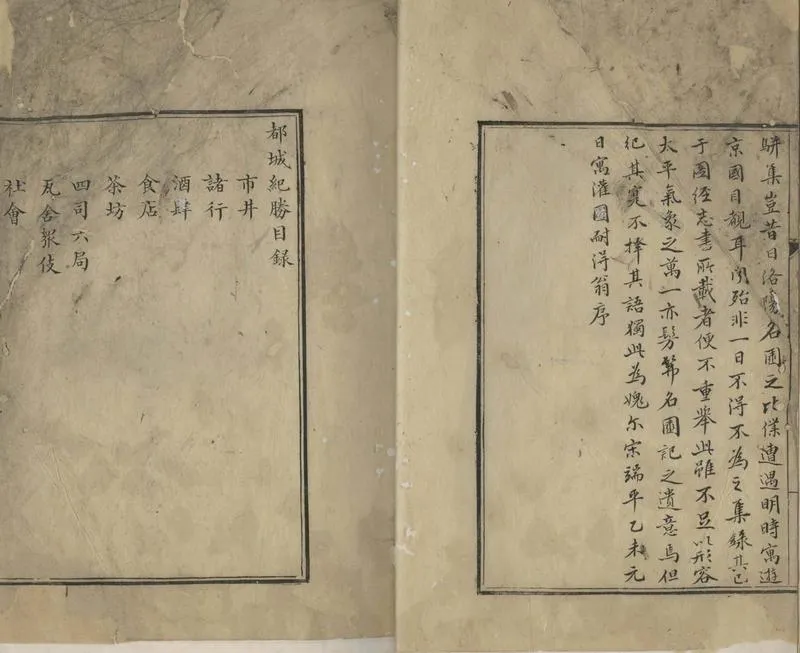 駢集豈昔日洛陽名園之比僕遭遇明時寓遊
京國目覩耳聞殆非一日不得不為之集錄其已
于圖經志書所載者便不重舉此雖不足以形容
太平氣象之萬一亦髣髴名園記之遺意焉但
紀其實不擇其語獨此為愧尒宋端平乙未元
日寓灌園耐得翁序
都城紀勝目錄
市井
諸行
酒肆
食店
茶坊
四司六局
瓦舍衆伎
社會